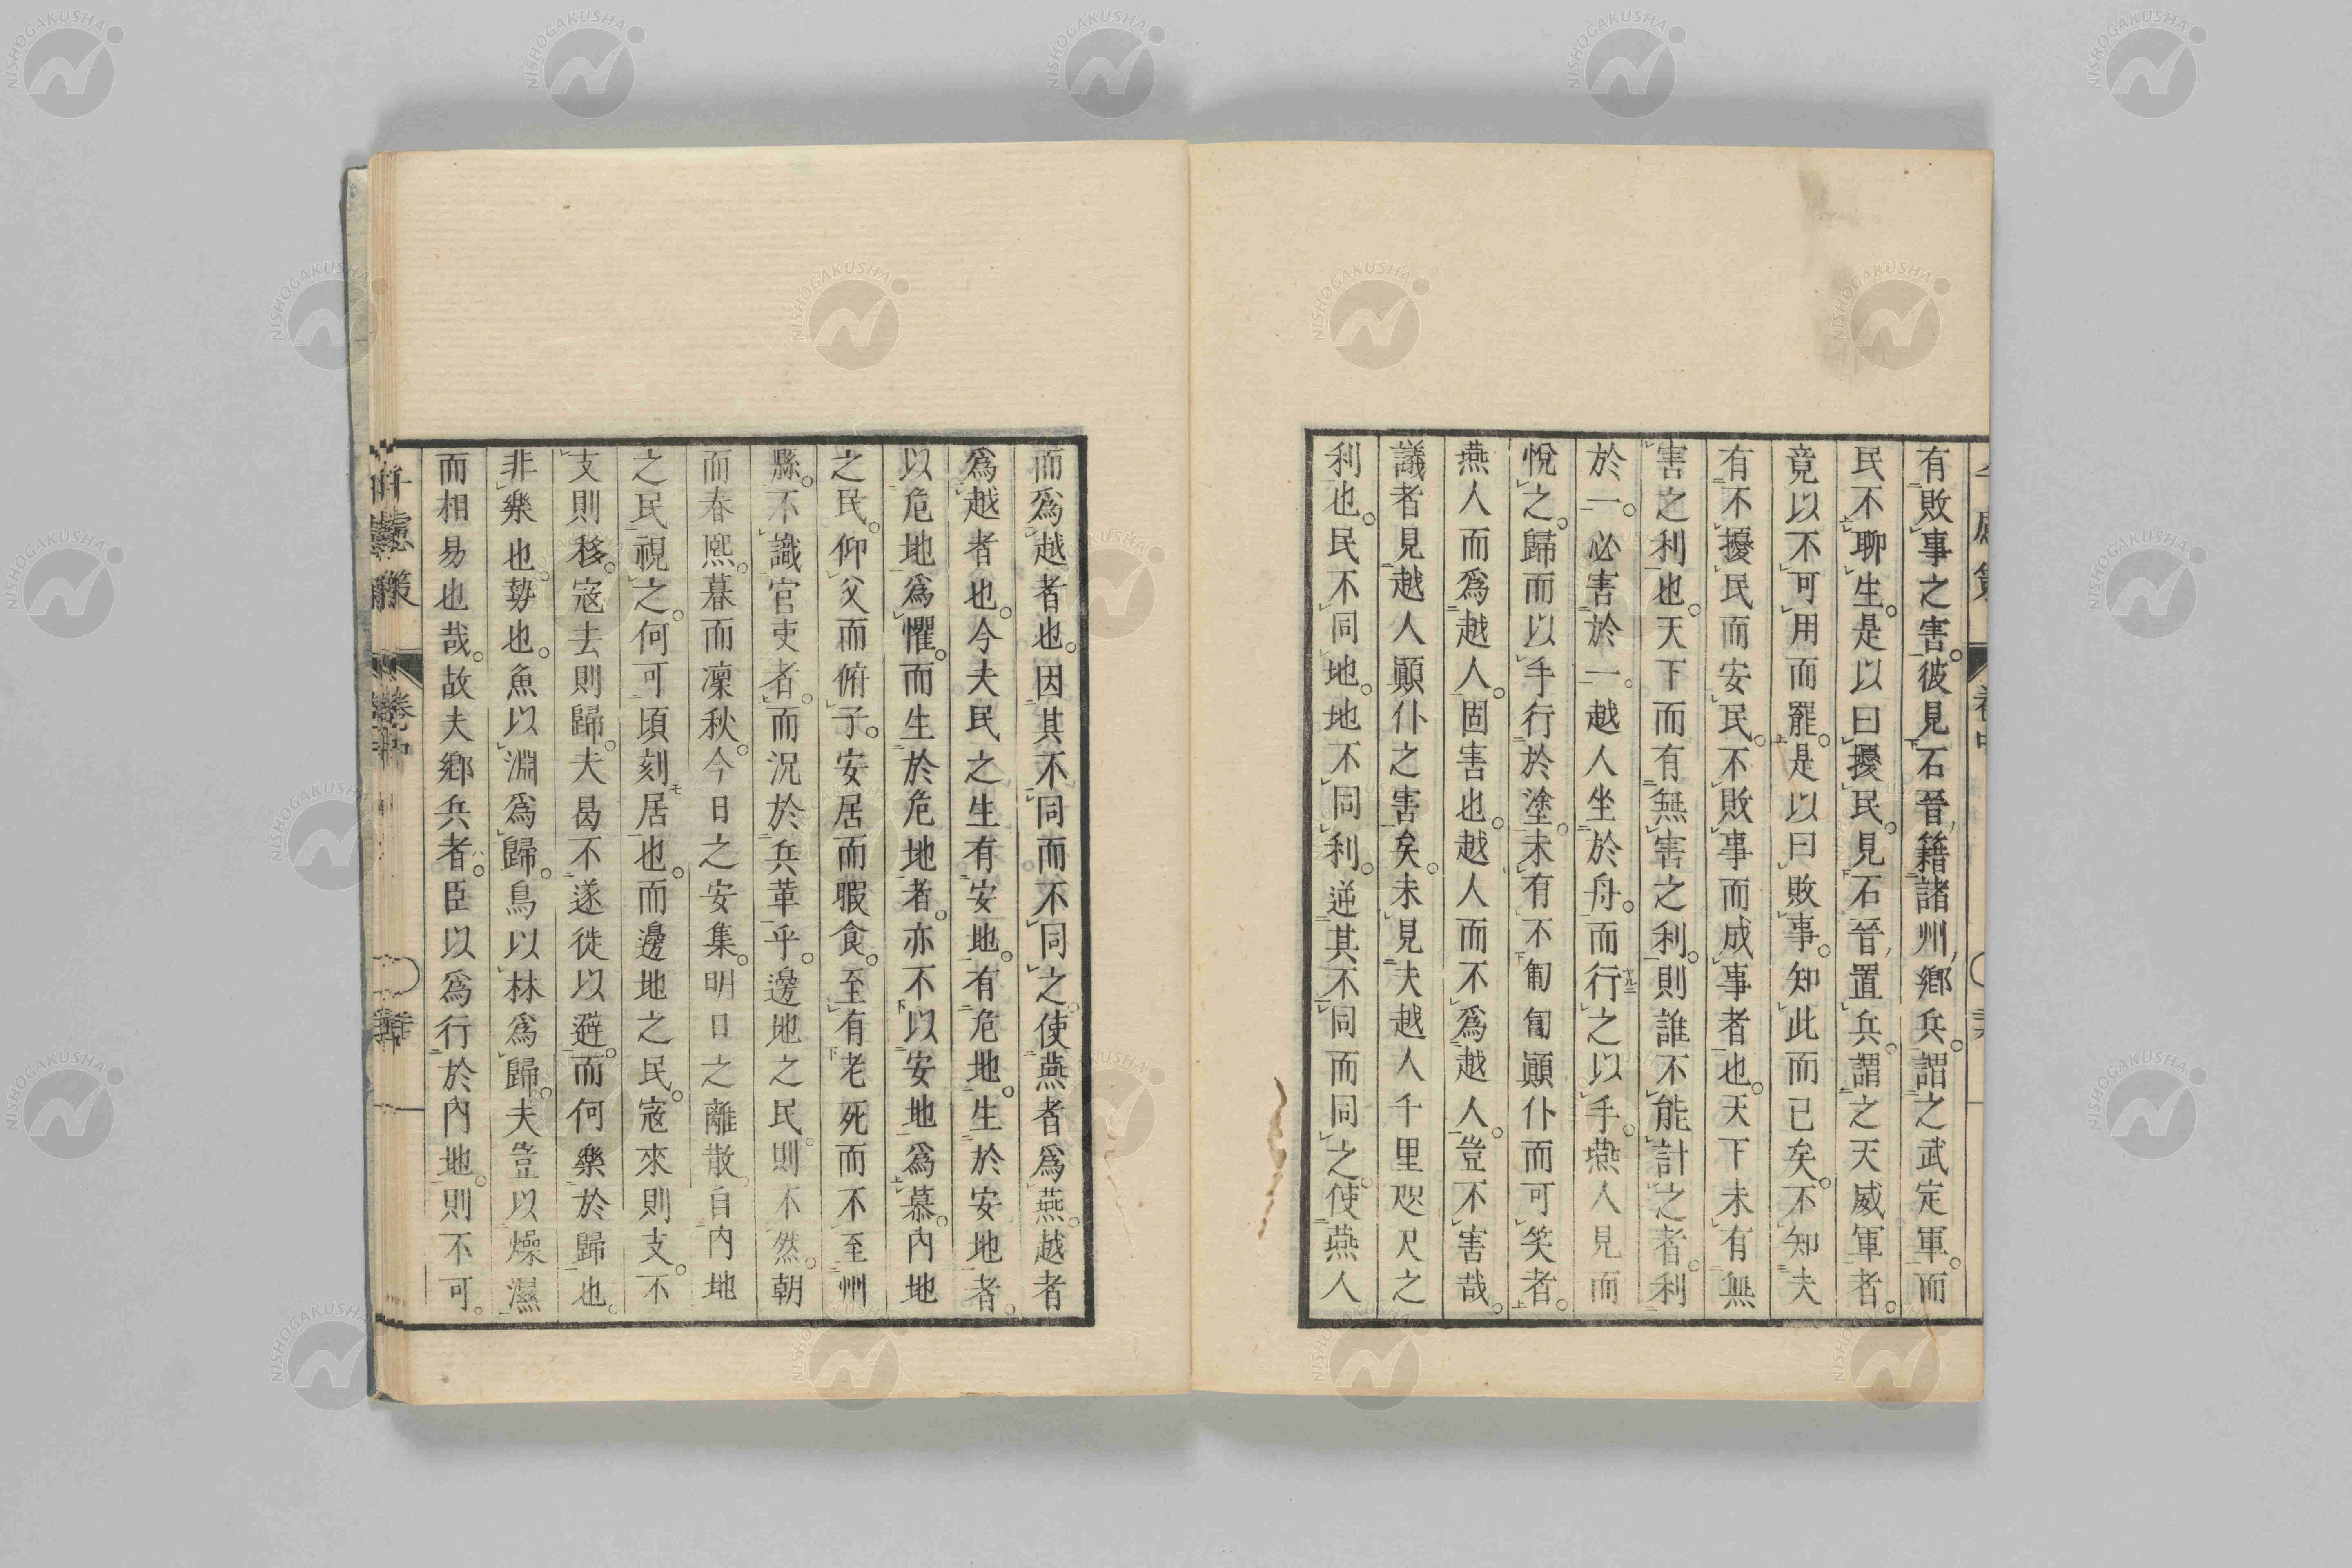 有敗事之害。彼見石晉籍諸州鄉兵。謂之武定軍。而
民不聊生。是以曰擾民。見石晉置兵。謂之天威軍者。
竟以不可用而罷。是以曰敗事。知此而已矣。不知夫
有不擾民而安民。不敗事而成事者也。天下未有無
害之利也。天下而有無害之利。則誰不能計之者。利
於一。必害於一。越人坐於舟。而行之以手。燕人見而
悅之。歸而以手行於塗。未有不匍匐顚仆而可笑者。
燕人而爲越人。固害也。越人而不爲越人。豈不害哉。
議者見越人顚仆之害矣。未見夫越人千里咫尺之
利也。民不同地。地不同利。逆其不同而同之。使燕人
而爲越者也。因其不同而不同之。使燕者爲燕。越者
爲越者也。今夫民之生有安地。有危地。生於安地者。
以危地爲懼。而生於危地者。亦不以安地爲慕。內地
之民。仰父而俯子。安居而暇食。至有老死而不至州
縣。不識官吏者。而況於兵革乎。邊地之民。則不然。朝
而春熙。暮而凜秋。今日之安集。明日之離散。自內地
之民視之。何可頃刻居也。而邊地之民。寇來則支。不
支則移。寇去則歸。夫曷不遂徙以避。而何樂於歸也。
非樂也。勢也。魚以淵爲歸。鳥以林爲歸。夫豈以燥濕
而相易也哉。故夫鄉兵者。臣以爲行於內地。則不可。
千慮策
卷中
NISHOGAKUSHA